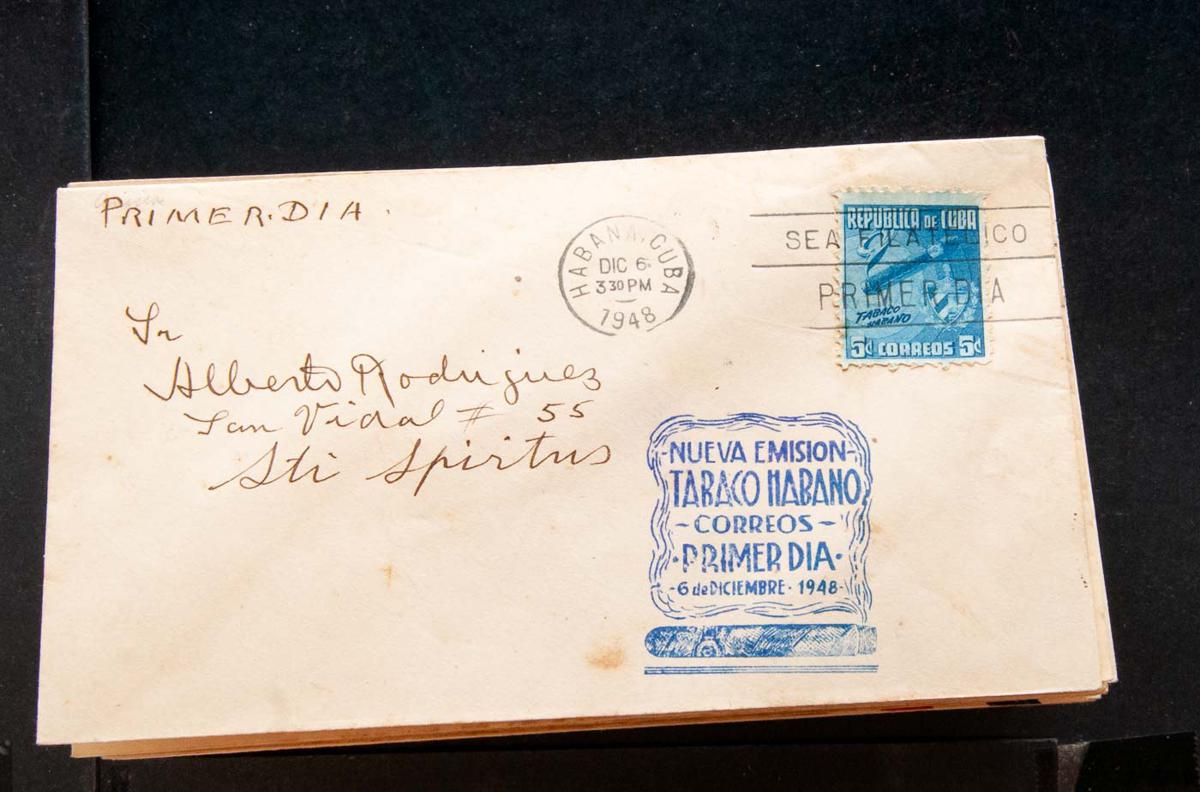 PRIMER.DIA.
HABANA, CUBA
DIC 6
3 30 PM
1948
SEA FILATELICO
PRIMER DIA
REPUBLICA DE CUBA
TABACO
HABANO
5¢ CORREOS 5¢
Sr
Alberto Rodriguez
San Vidal # 55
Sti Spiritus
-NUEVA EMISION-
TABACO HABANO
-CORREOS-
·PRIMER DIA·
·6 de DICIEMBRE·1948·